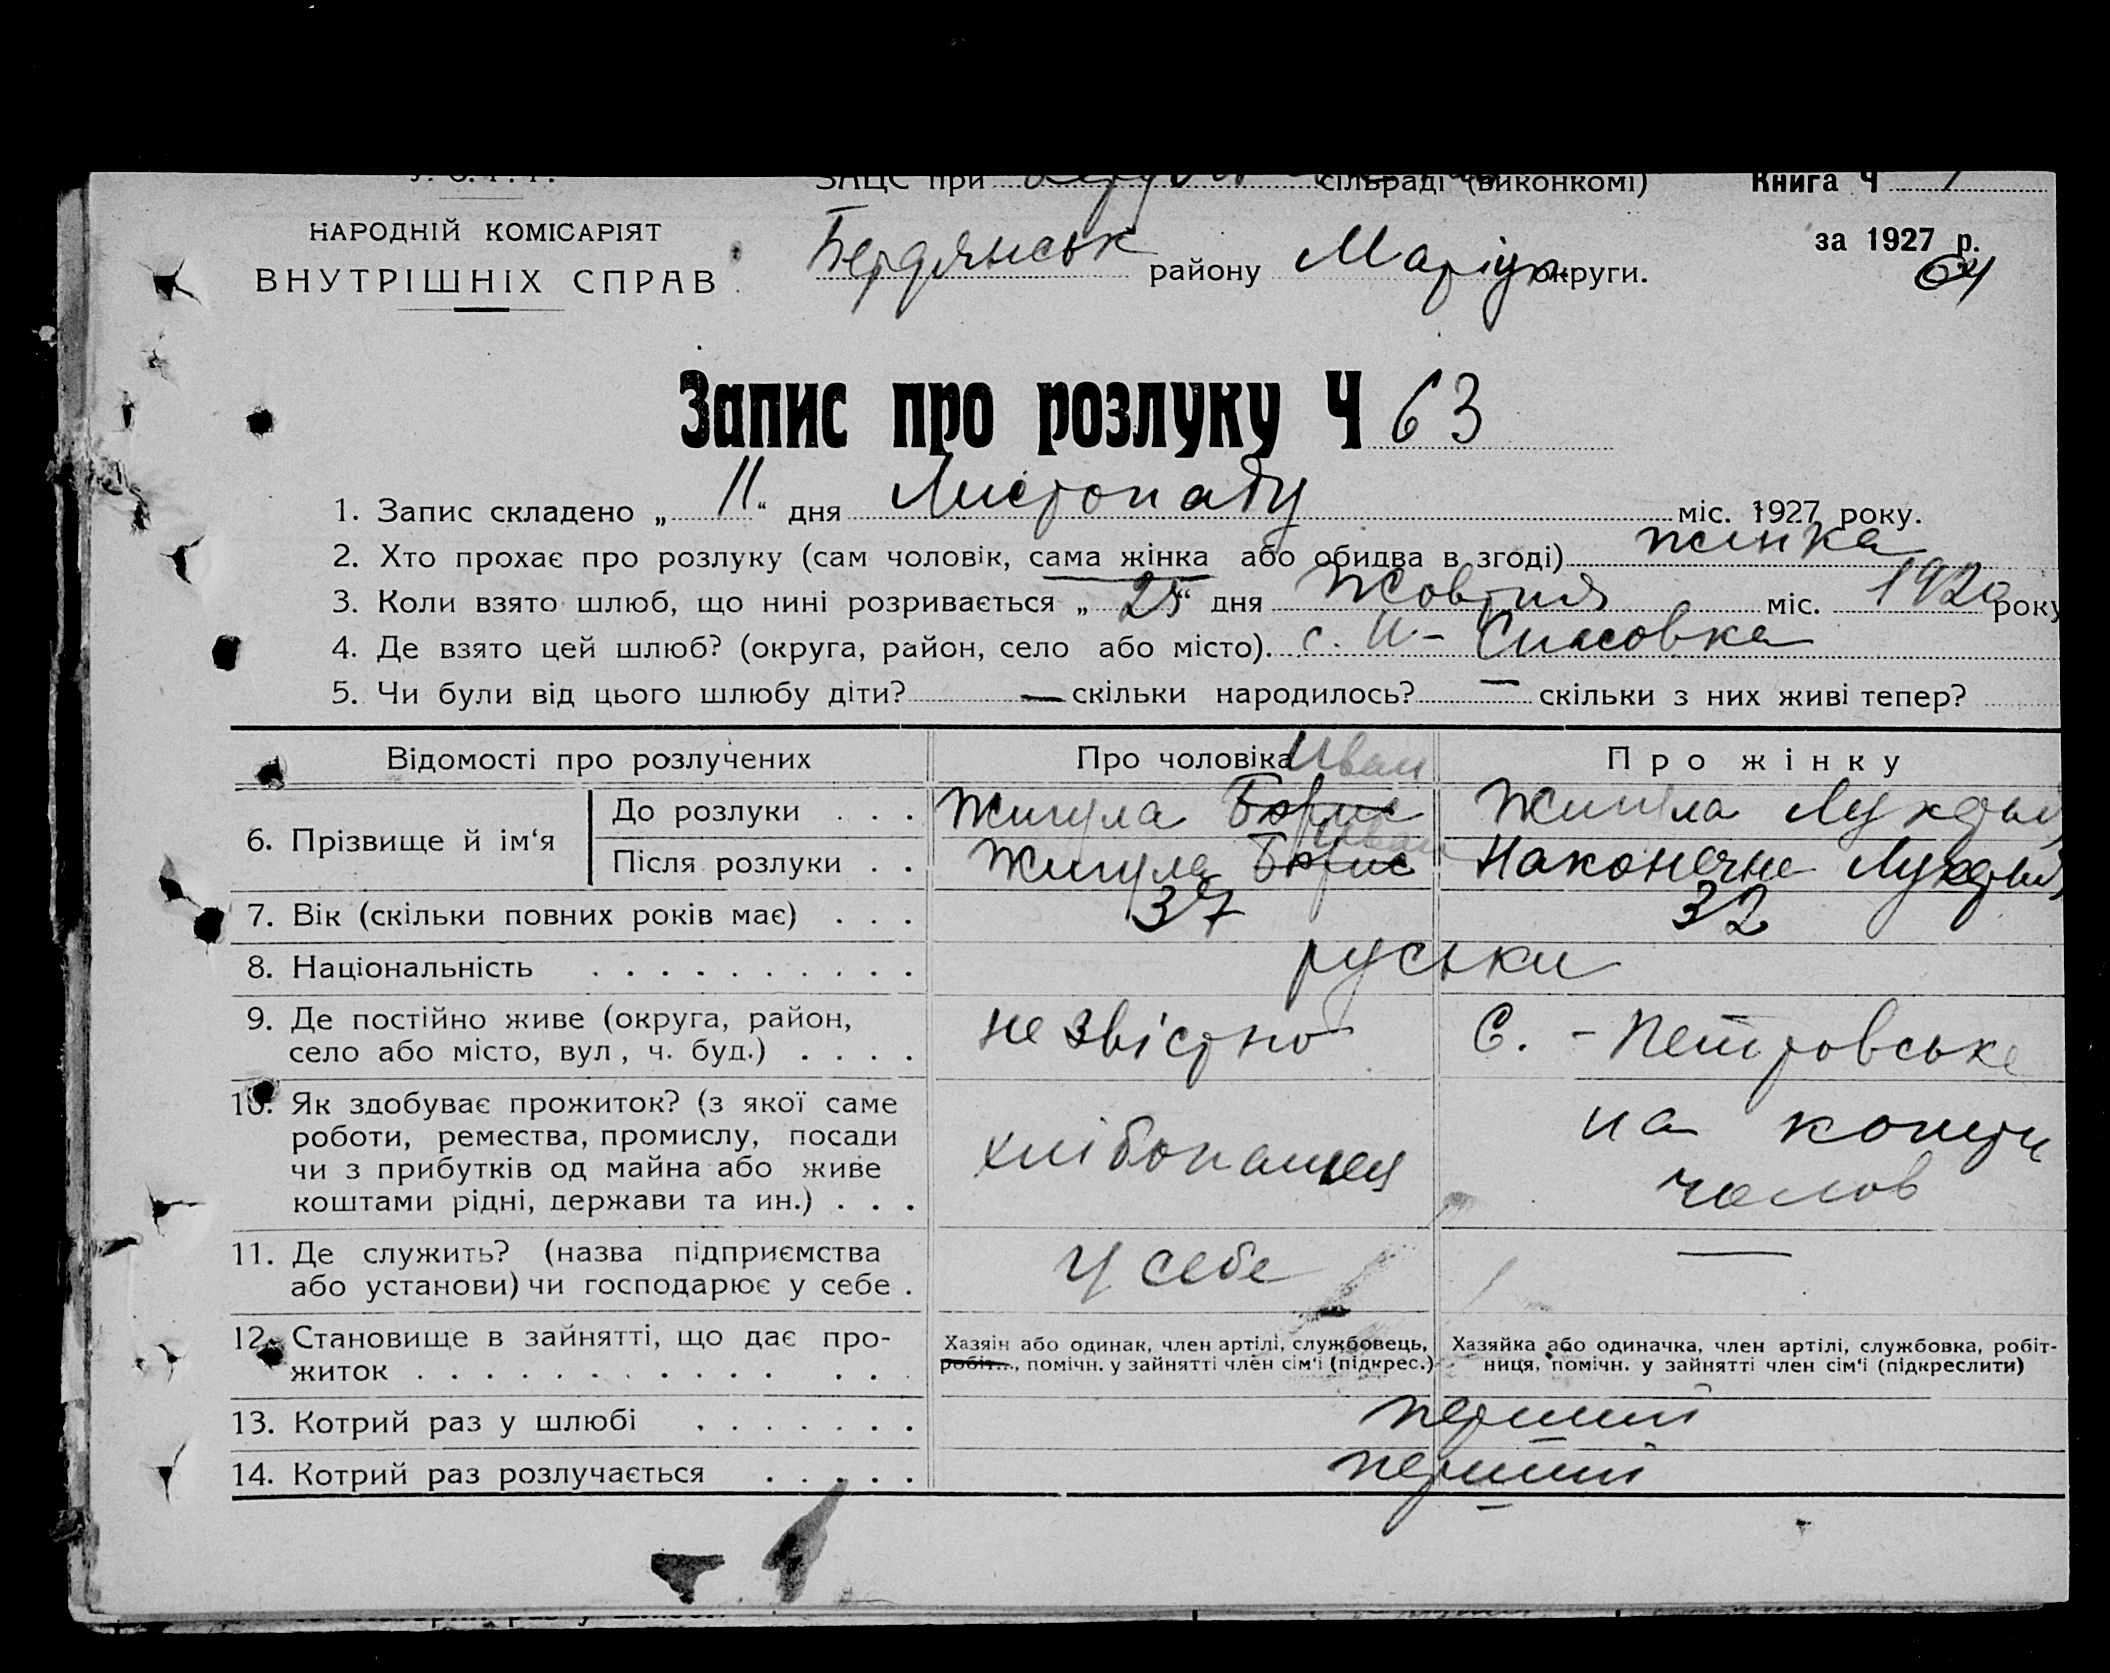 ЗАЦС при сільраді (виконкомі) Книга Ч 1
НАРОДНІЙ КОМІСАРІЯТ
ВНУТРІШНІХ СПРАВ
Бердянськ району Маріуп округи.
за 1927 р.
64
Запис про розлуку Ч 63
1. Запис складено „ 11 “ дня Листопаду міс. 1927 року.
2. Хто прохає про розлуку (сам чоловік, сама жінка або обидва в згоді) жінка
3. Коли взято шлюб, що нині розривається „ 25 “ дня Жовтня міс. 1920 року
4. Де взято цей шлюб? (округа, район, село або місто). с. Н- Спасовка
5. Чи були від цього шлюбу діти? — скільки народилось? — скільки з них живі тепер?
Відомості про розлучених Про чоловіка Про жінку
Иван
6. Прізвище й ім‘я
До розлуки . . . Жигула Борис Жигула
Иван
Після розлуки . . Жигула Борис Наконечне
7. Вік (скільки повних років має) . . . 37 32
8. Національність . . . . . . . . . . руськи
9. Де постійно живе (округа, район, село або місто, вул, ч. буд.) . . . .
незвістно С. - Петровське
10. Як здобуває прожиток? (з якої саме
роботи, ремества, промислу, посади
чи з прибутків од майна або живе
коштами рідні, держави та ин.) . . .
хлібопашец
на кошти
чолов
11. Де служить? (назва підприємства
або установи) чи господарює у себе .
У себе —
12. Становище в зайнятті, що дає про-
житок . . . . . . . . . . . . .
Хазяін або одинак, член артілі, службовець,
робіт..., помічн. у зайнятті член сім‘ї (підкрес.)
Хазяйка або одиначка, член артілі, службовка, робіт-
ниця, помічн. у зайнятті член сім‘ї (підкреслити)
13. Котрий раз у шлюбі . . . . . . . перший
14. Котрий раз розлучається . . . . . перший